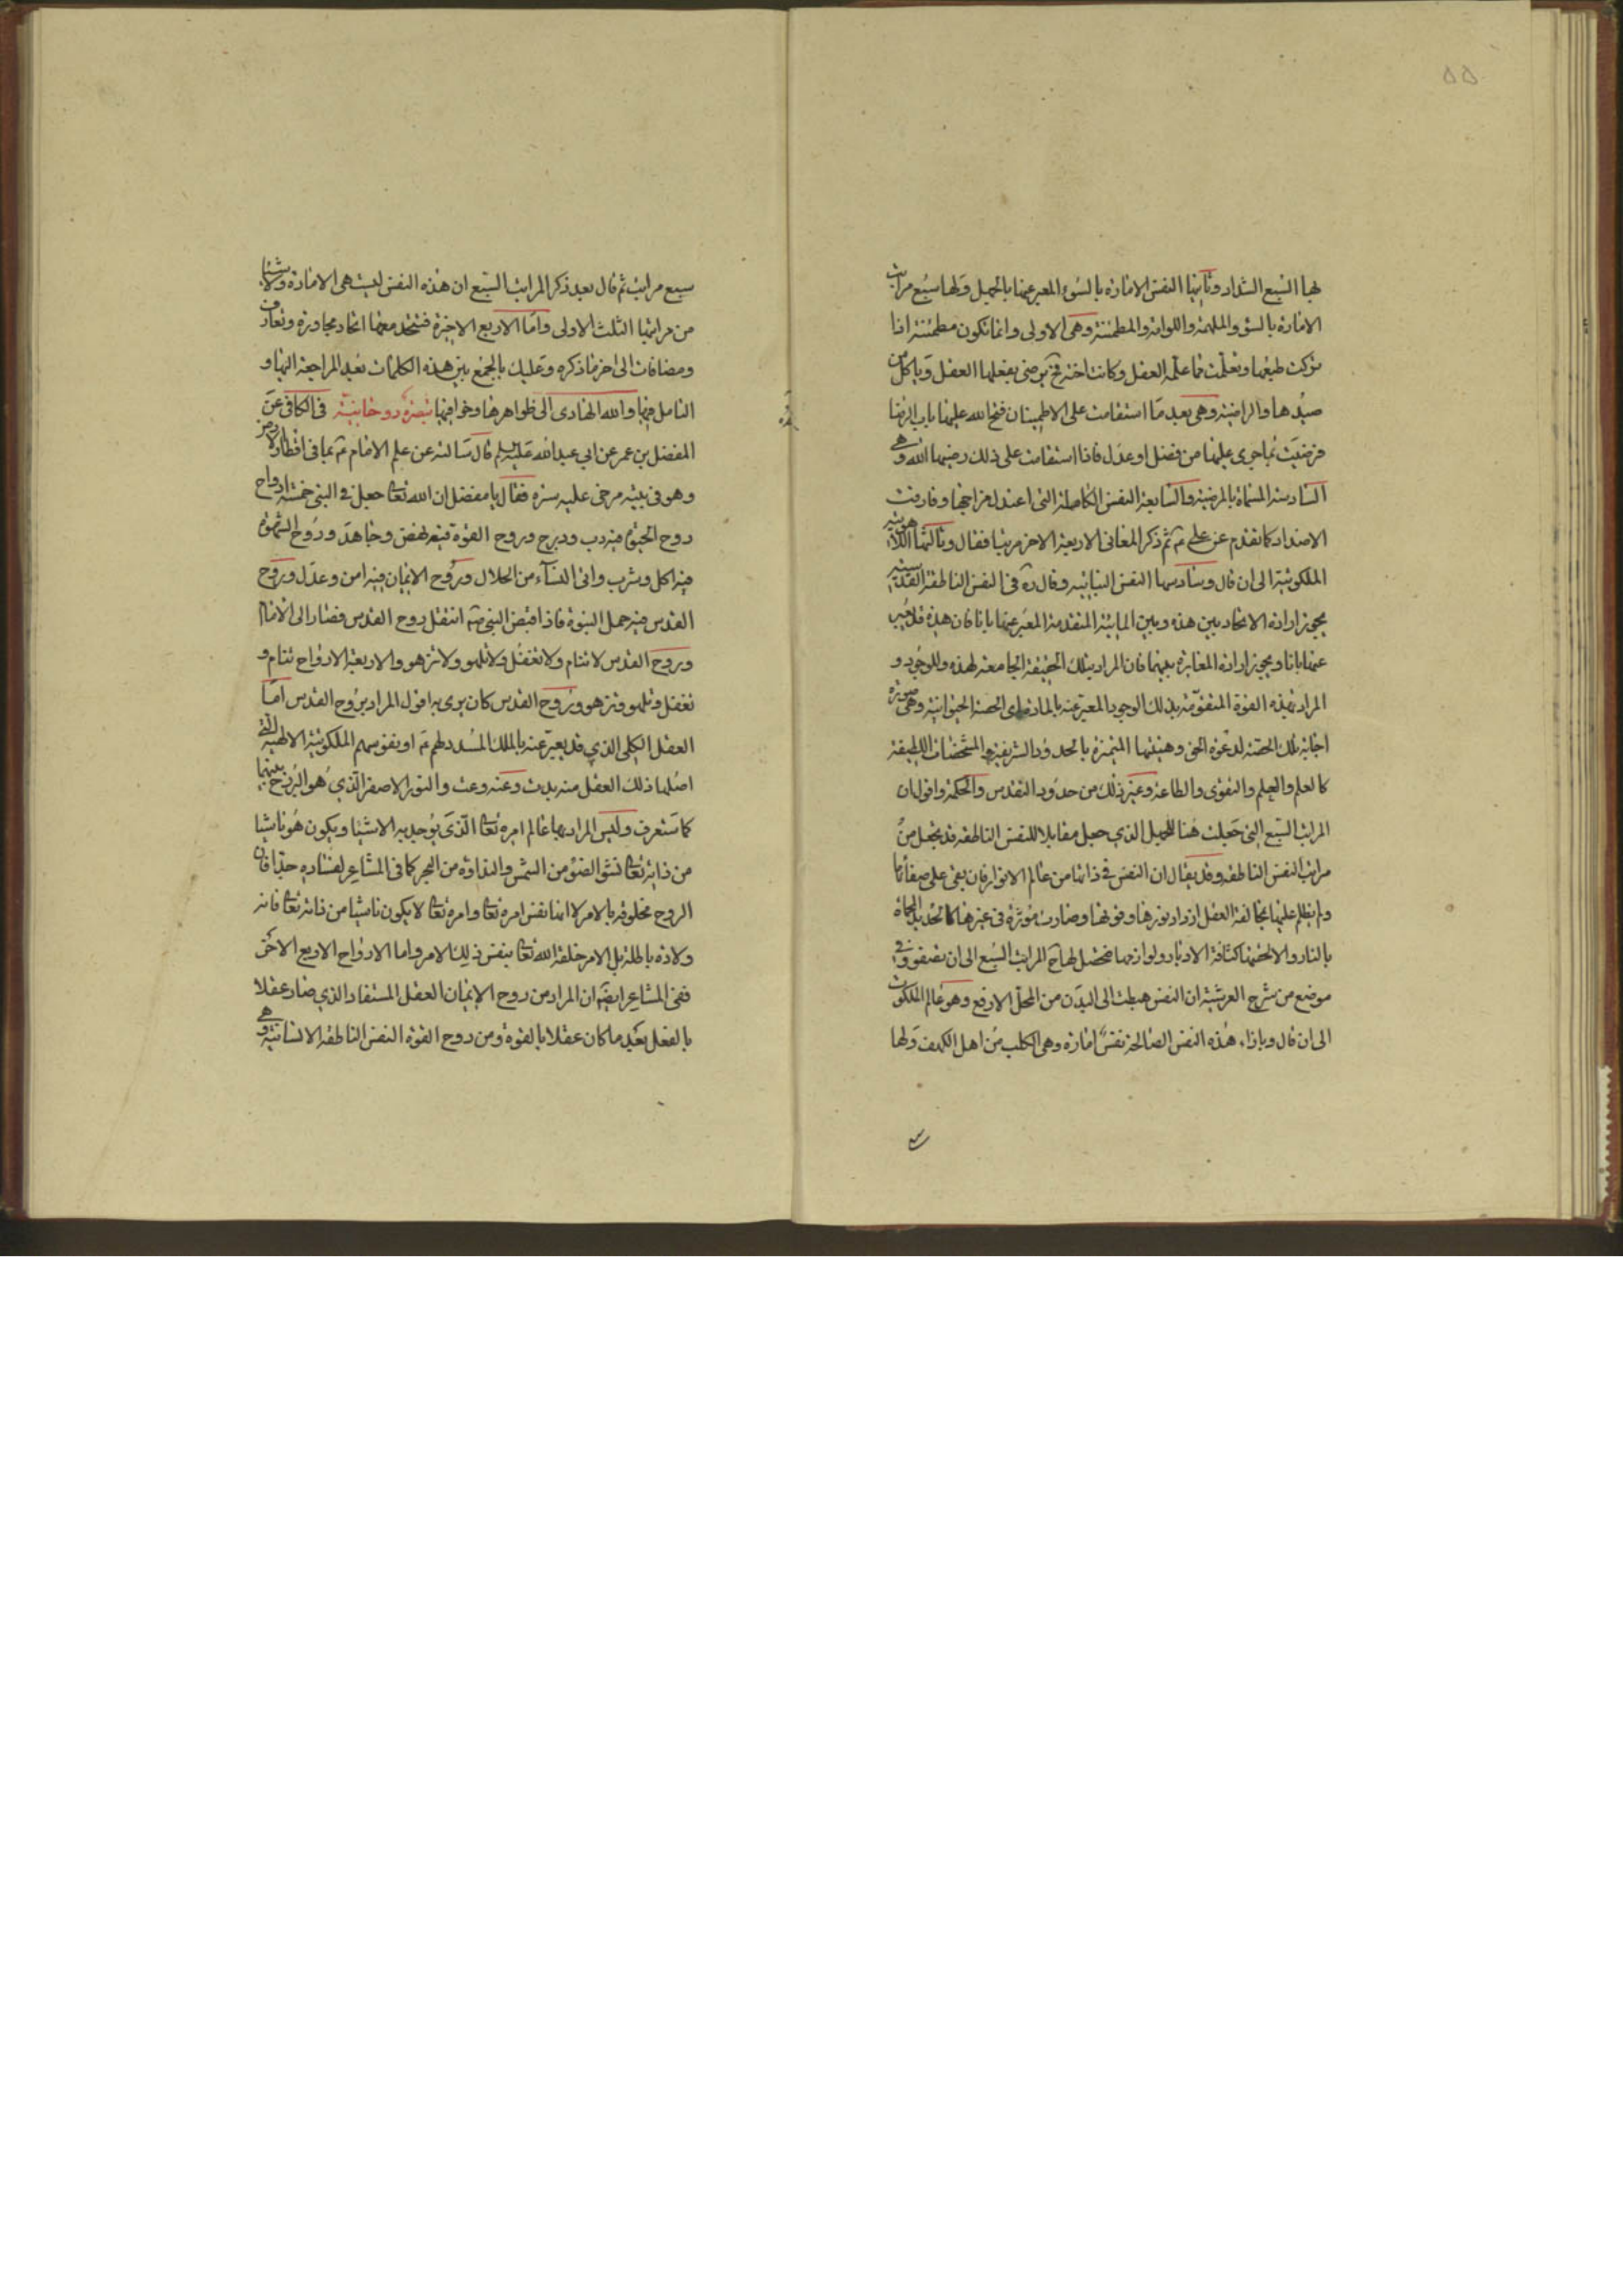 ۵۵
بها السبع الشداد وثانيها النفس الامارة بالسوء المعبر عنها بالجهل ولها سبع مراتب
الامارة بالسوء والملهمة واللوامة والمطمئنة وهى الاولى وانما تكون مطمئنة اذا
تركت طبعها وتعلمت مما علمه العقل وكانت اخته ح يرضى بفعلها العقل وياكل من
صيدها والراضية وهى بعد ما استقامت على الاطمينان فتح الله عليها باب الرضا
فرضيت بما جرى عليها من فضل او عدل فاذا استقامت على ذلك رضيها الله وهى
السادسة المسماة بالمرضية والسابعة النفس الكاملة التى اعتدل مزاجها وفارقت
الاضداد كما تقدم عن على ع ثم ذكر المعانى الاربعة الاخر مرتبا فقال وثالثها اللاهوتية
الملكوتية الى ان قال وسادسها النفس النباتية وقال ره فى النفس الناطقة القدسية
يجوز ارادة الاتحاد بين هذه وبين المائية المتقدمة المعبر عنها بانا فان هذه قد يعبر
عنها بانا ويجوز ارادة المغايرة بينهما فان المراد بتلك الحقيقة الجامعة لهذه وللوجود و
المراد بهذه القوة المتقومة بذلك الوجود المعبر عنه بالمادة اى الحصة الحيوانية وهى صورة
اجابة تلك الحصة لدعوة الحق وهيئتها المتميزة بالحدود الشريفة والمشخصات اللطيفة
كالعلم والحلم والتقوى والطاعة وغير ذلك من حدود التقدس والحكمة واقول ان
المراتب السبع التى جعلت هنا للجهل الذي جعل مقابلا للنفس الناطقة قد تجعل من
مراتب النفس الناطقة وقد يقال ان النفس فى ذاتها من عالم الانوار فان بقى على صفائها
ولم يظلم عليها بمخالفة العقل ازداد نورها وقوتها وصارت مؤثرة فى غيرها كالحديدة المحماة
بالنار والا لحقتها كثافة الادبار ولوازمها فتحصل لها ح المراتب السبع الى ان تصفو وفى
موضع من شرح العرشية ان النفس هبطت الى البدن من المحل الارفع وهو عالم الملكوت
الى ان قال وبازاء هذه النفس الصالحة نفس امارة وهى الكلب من اهل الكهف ولها
سبع مراتب ثم قال بعد ذكر المراتب السبع ان هذه النفس ليست هى الامارة ولا شيئا
من مراتبها الثلث الاولى واما الاربع الاخيرة فتتحد معها اتحاد مجاورة وتعارف
ومضافات الى اخر ما ذكره وعليك بالجمع بين هذه الكلمات بعد المراجعة اليها و
التامل فيها والله الهادى الى ظواهرها وخوافيها تبصرة روحانية فى الكافى عن
المفضل بن عمر عن ابي عبد الله عليه السلم قال سالته عن علم الامام ع بما فى اقطار الارض
وهو فى بيته مرخى عليه ستره فقال يا مفضل ان الله تعا جعل فى النبى خمسة ارواح
روح الحيوة فبه دب ودرج وروح القوة فبه نهض وجاهد وروح الشهوة
فبه اكل وشرب واتى النساء من الحلال وروح الايمان فبه امن وعدل وروح
القدس فبه حمل النبوة فاذا قبض النبى ص انتقل روح القدس فصار الى الامام
وروح القدس لا تنام ولا تغفل ولا تلهو ولا تزهو والاربعة الارواح تنام و
تغفل وتلهو وتزهو وروح القدس كان يرى به اقول المراد بروح القدس اما
العقل الكلى الذي قد يعبر عنه بالملك المسدد لهم ع او نفوسهم الملكوتية الالهية التى
اصلها ذلك العقل منه بدئت وعنه وعت والنور الاصفر الذي هو البرزخ بينهما
كما ستعرف وليس المراد بها عالم امره تعا الذي يوجد به الاشيا ويكون هو ناشيا
من ذاته تعا نشو الضوء من الشمس والنداوة من البحر كما فى المشاعر لفساده جدا فان
الروح مخلوقة بالامر لا انها نفس امره تعا وامره تعا لا يكون ناشيا من ذاته تعا فانه
ولادة باطلة بل الامر خلقه الله تعا بنفس ذلك الامر واما الارواح الاربع الاخر
ففى المشاعر ايضا ان المراد من روح الايمان العقل المستفاد الذي صار عقلا
بالفعل بعد ما كان عقلا بالقوة ومن روح القوة النفس الناطقة الانسانية وهى